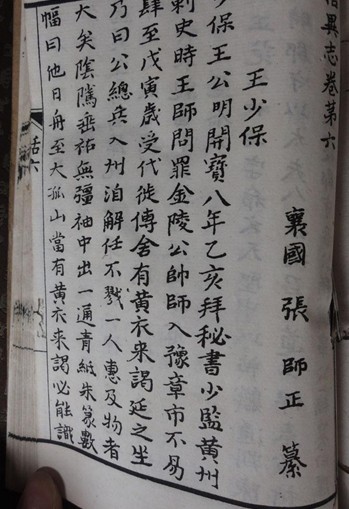 異志卷第六
襄國張師正纂
王少保
少保王公明開寶八年乙亥拜秘書少監黄州
刺史時王師問罪金陵公帥師入豫章市不易
肆至戊寅歲受代徙傳舍有黄衣来謁延之坐
乃曰公總兵入州洎解任不戮一人惠及物者
大矣陰騭垂祐無疆袖中出一通青紙朱篆數
幅曰他日舟至大孤山當有黄衣来謁必能識
括六